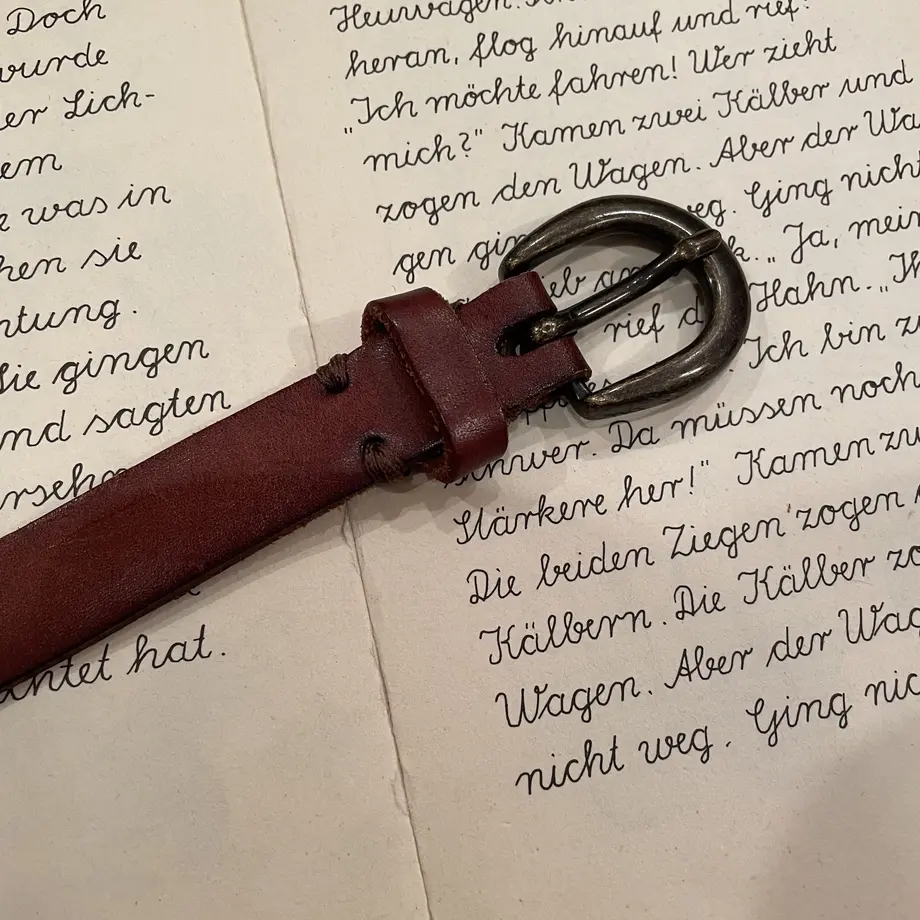 Doch
wurde
er Lich-
em
was in
hen sie
htung.
Sie gingen
nd sagten
htet hat.
Heuwagen.
heran, flog hinauf und rief:
"Ich möchte fahren! Wer zieht
mich?" Kamen zwei Kälber und
zogen den Wagen. Aber der Wa
gen gin eg. Ging nicht
ieb k. „Ja, mein
rief d Hahn. „Ih
Ich bin zu
Da müssen noch
Stärkere her!" Kamen zw
Die beiden Ziegen zogen
Kälbern. Die Kälber zo
Wagen. Aber der Wag
nicht weg. Ging nic